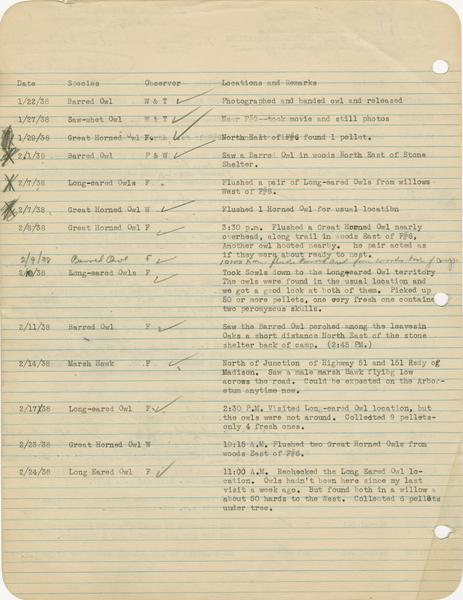 Date Species Observer Locations and Remarks
1/22/38 Barred Owl W & T Photographed and banded owl and released
1/27/38 Saw-whet Owl W & T Near F#2--took movie and still photos
1/29/38 Great Horned Owl F. North East of F#6 found 1 pellet.
2/1/38 Barred Owl P & W Saw a Barred Owl in woods North East of Stone
Shelter.
2/7/38 Long-eared Owls F Flushed a pair of Long-eared Owls from willows
West of F#6.
2/7/38 Great Horned Owl W Flushed 1 Horned Owl for usual locatibn
2/8/38 Great Horned Owl F 3:30 p.m. Flushed a Great Horned Owl nearly
overhead, along trail in woods East of F#6,
Another owl hooted nearby. he pair acted as
if they were about ready to nest.
2/9/38 Barred Owl F flushed Barred Owl from woods
2/10/38 Long-eared Owls F Took Sowls down to the Long-eared Owl territory
The owls were found in the usual location and
we got a good look at both of them. Picked up
50 or more pellets, one very fresh one containe
two peromyscus skulls.
2/11/38 Barred Owl F Saw the Barred Owl perched among the leavesin
Oaks a short distance North East of the stone
shelter back of camp. (2:45 PM.)
2/14/38 Marsh Hawk F North of Junction of Highway 51 and 151 Rsdy of
Madison. Saw a male marsh Hawk flyibg low
across the road. Could be expected on the Arbor-
etum anytime now.
2/17/38 Long-eared Owl F 2:30 P.M. Visited Long-eared Owl location, but
the owls were not around. Collected 9 pellets-
only 4 fresh ones.
2/23/38 Great Horned Owl W 10:15 A.M. Flushed two Great Horned Owls from
woods East of F#6.
2/24/38 Long Eared Owl F 11:00 A.M. Rechecked the Long Eared Owl lo-
cation. Owls hadn't been here since my last
visit a week ago. But found both in a willow a
about 50 hards to the West. Collected 6 pellets
under tree.